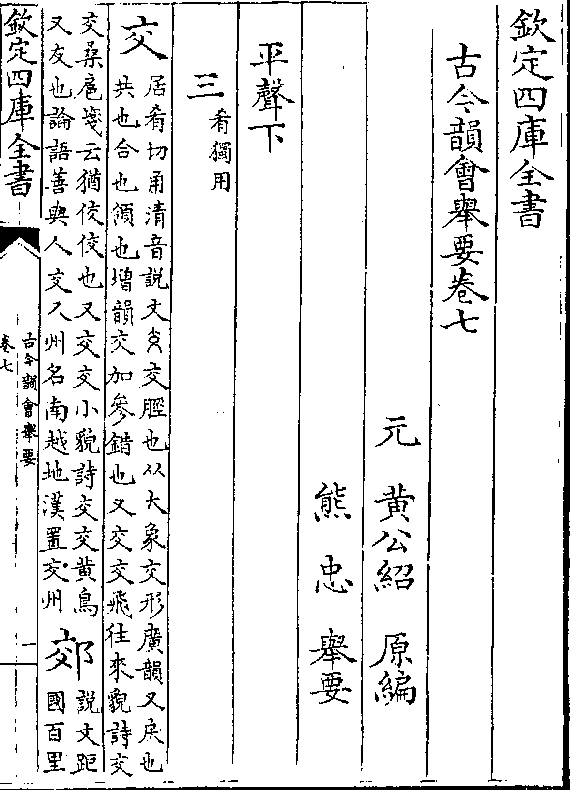 欽定四庫全書
古今韻會舉要卷七
元 黃公紹 原編
熊忠 舉要
平聲下
三 肴獨用
交 居肴切角清音說文交脛也从大象交形廣韻又戾也
共也合也領也增韻交加參錯也又交交飛往來貌詩交
交桑扈箋云猶佼佼也又交交小貌詩交交黃鳥
又友也論語善與人交又州名南越地漢置交州
郊 說文距
國百里
欽定四庫全書
古今韻會舉要
卷七
一